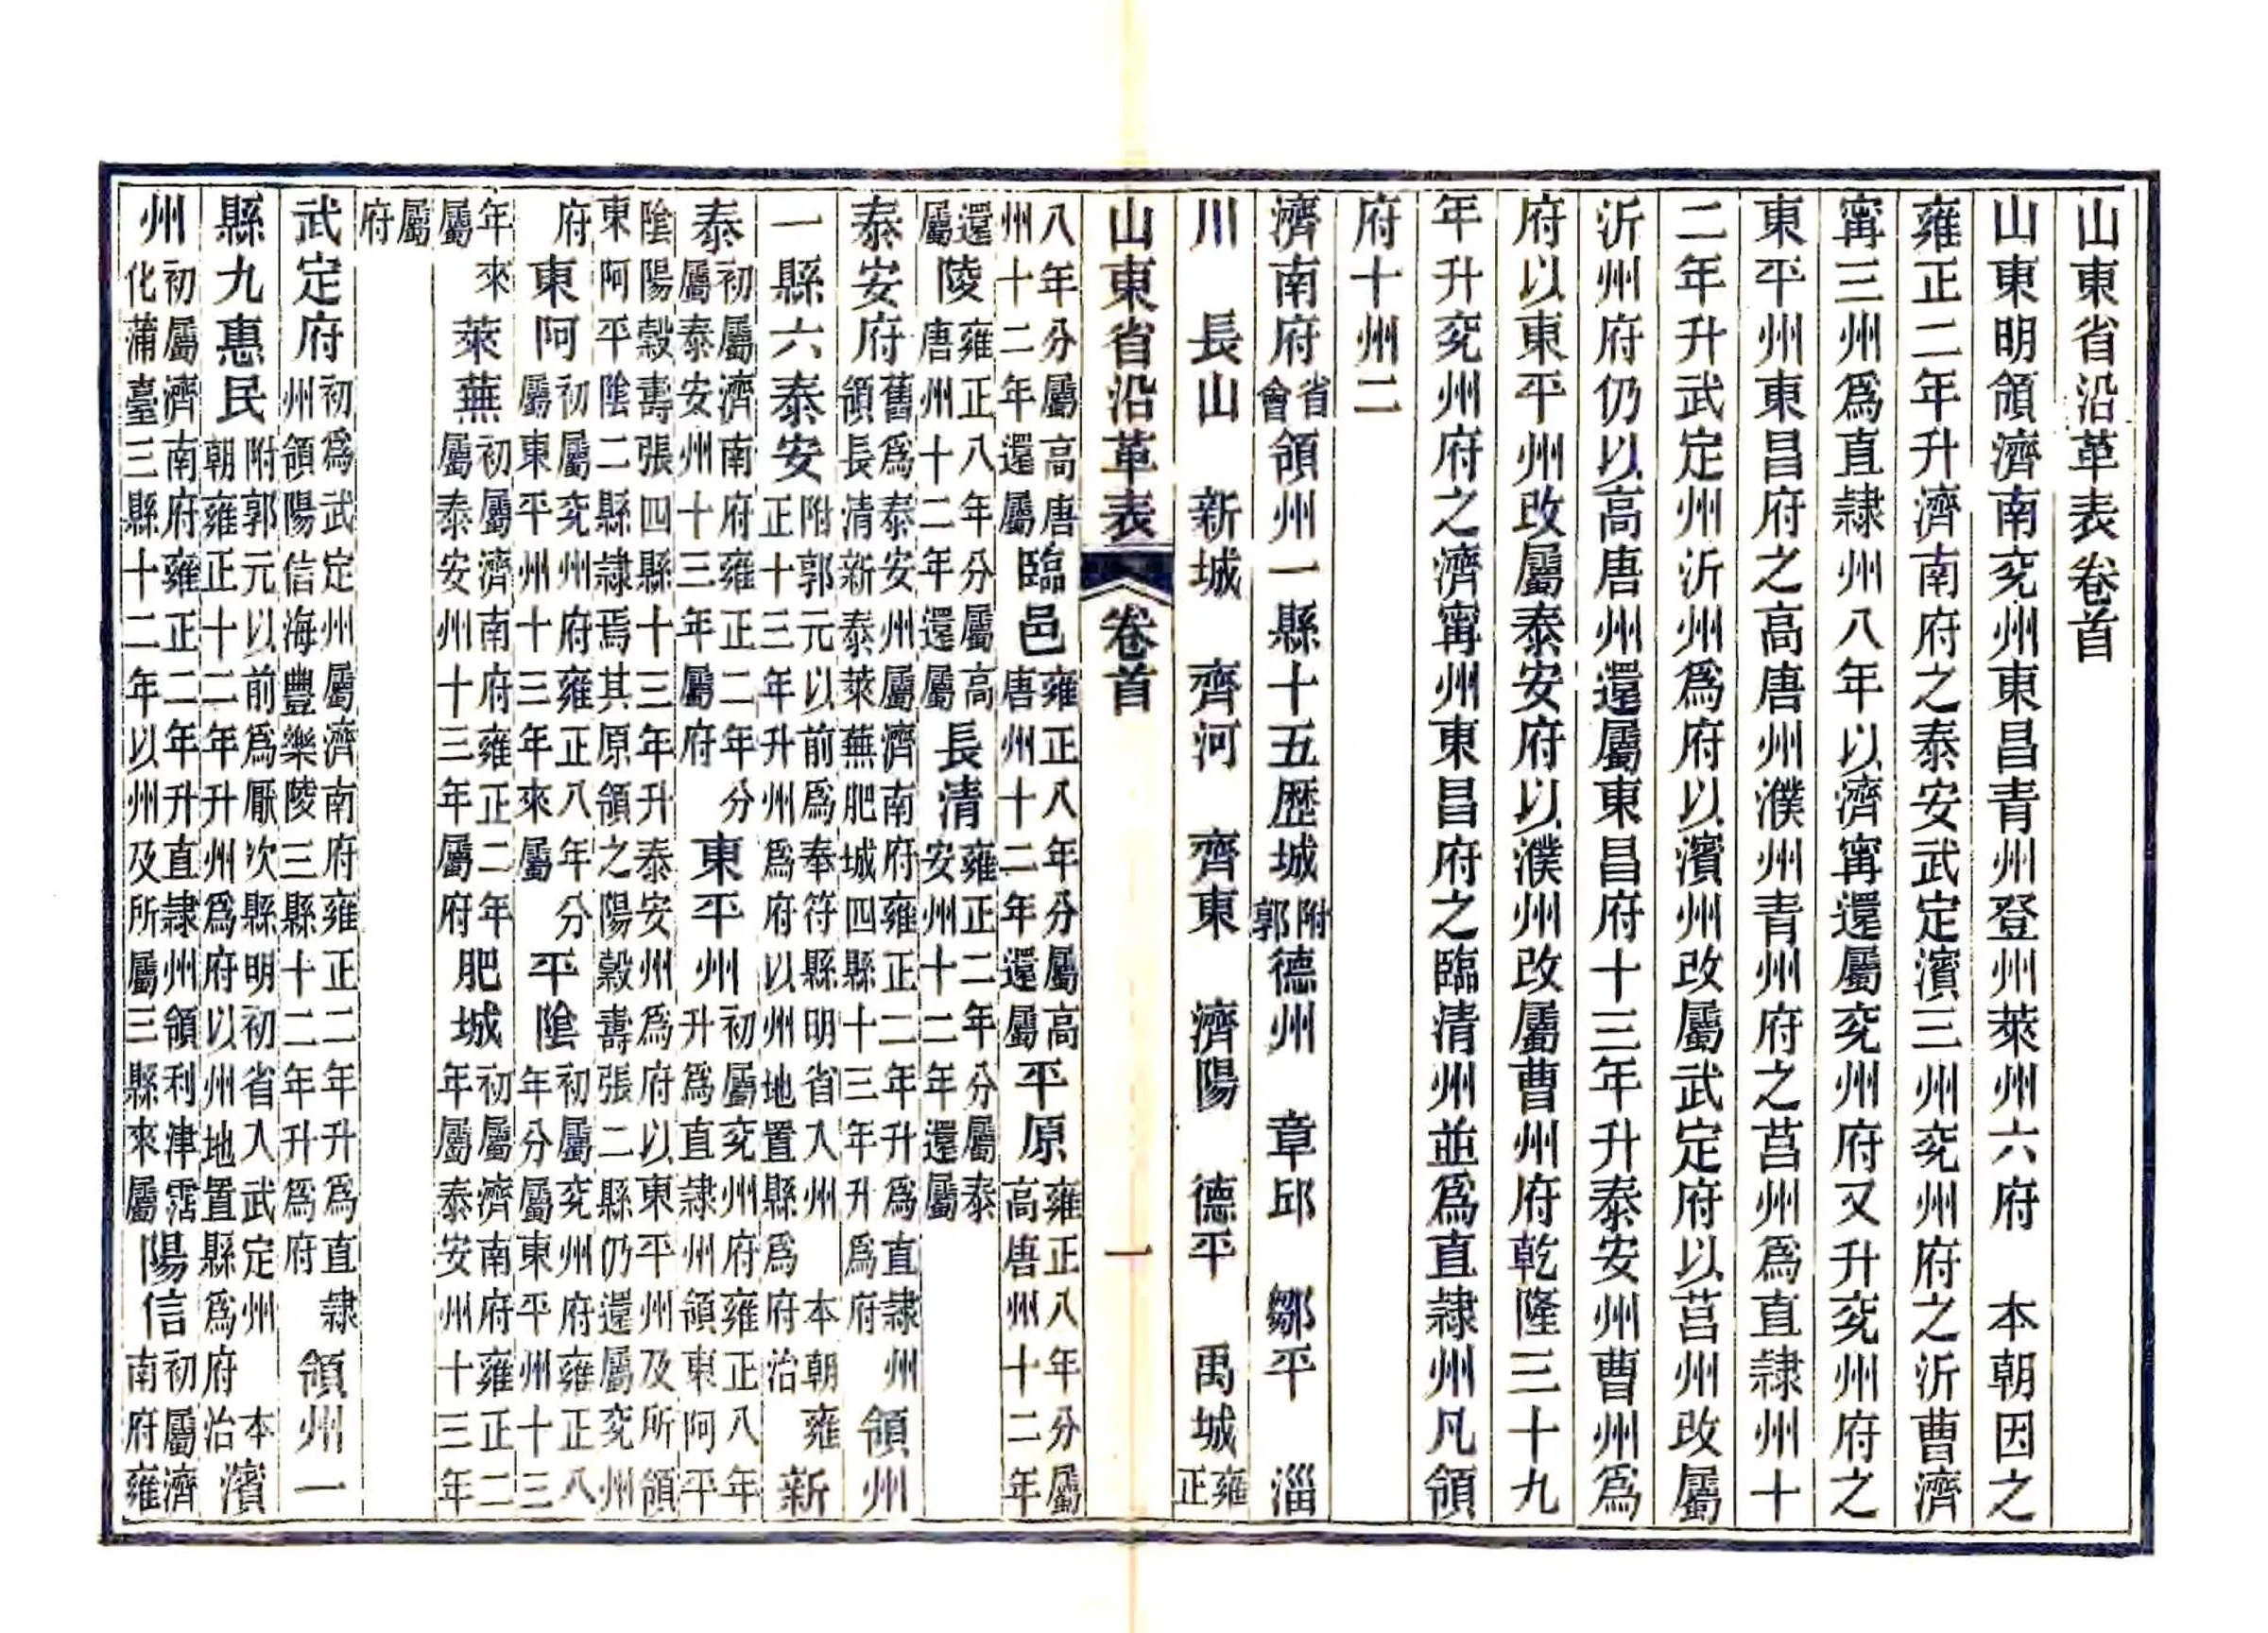 山東省沿革表卷首
山東明領濟南兖州東昌青州登州萊州六府　本朝因之
雍正二年升濟南府之泰安武定濱三州兖州府之沂曹濟
寗三州爲直隷州八年以濟寗還屬兖州府又升兖州府之
東平州東昌府之高唐州濮州青州府之莒州爲直隷州十
二年升武定州沂州爲府以濱州改屬武定府以莒州改屬
沂州府仍以高唐州還屬東昌府十三年升泰安州曹州爲
府以東平州改屬泰安府以濮州改屬曹州府乾隆三十九
年升兖州府之濟寗州東昌府之臨清州並爲直隷州凡領
府十州二
濟南府省會領州一縣十五歷城附郭德州　章邱　鄒平　淄
川　長山　新城　齊河　齊東　濟陽　德平　禹城雍正
山東省沿革表　卷首　一
八年分屬高唐州十二年還屬臨邑雍正八年分屬高唐州十二年還屬平原雍正八年分屬高唐州十二年
還屬陵雍正八年分屬高唐州十二年還屬長清雍正二年分屬泰安州十二年還屬
泰安府舊爲泰安州屬濟南府雍正二年升爲直隷州領長清新泰萊蕪肥城四縣十三年升爲府領州
一縣六泰安附郭元以前爲奉符縣明省入州　本朝雍正十三年升州爲府以州地置縣爲府治新
泰初屬濟南府雍正二年分屬泰安州十三年屬府東平州初屬兖州府雍正八年升爲直隷州領東阿平
陰陽穀壽張四縣十三年升泰安州爲府以東平州及所領東阿平陰二縣隷焉其原領之陽穀壽張二縣仍還屬兖州
府東阿初屬兖州府雍正八年分屬東平州十三年來屬平陰初屬兖州府雍正八年分屬東平州十三
年來屬萊蕪初屬濟南府雍正二年屬泰安州十三年屬府肥城初屬濟南府雍正二年屬泰安州十三年
屬府
武定府初爲武定州屬濟南府雍正二年升爲直隷州領陽信海豐樂陵三縣十二年升爲府領州一
縣九惠民附郭元以前爲厭次縣明初省入武定州　本朝雍正十二年升州爲府以州地置縣爲府治濱
州初屬濟南府雍正二年升直隷州領利津霑化蒲臺三縣十二年以州及所屬三縣來屬陽信初屬濟南府雍